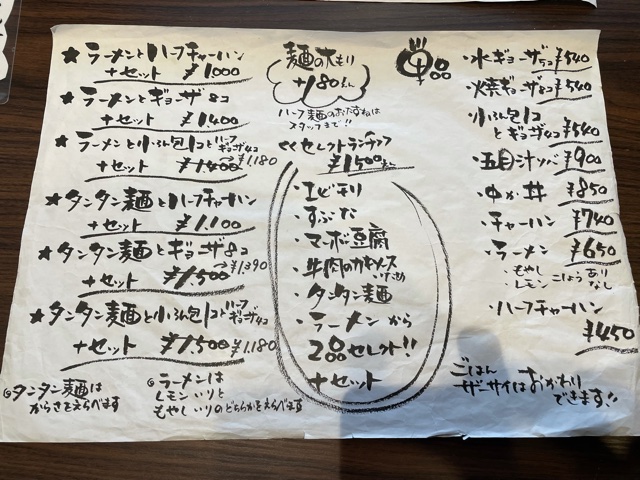 ★ラーメンとハーフチャーハン
+セット ¥1.000
★ラーメンとギョーザ8コ
+セット ¥1.400
★ラーメンと小ろん包1コとハーフギョーザ4コ
+セット ¥1.400→¥1.180
★タンタン麺とハーフチャーハン
+セット ¥1.100
★タンタン麺とギョーザ8コ
+セット ¥1.500→¥1.390
★タンタン麺と小ろん包1コとハーフギョーザ4コ
+セット ¥1.500 ¥1.180
◎タンタン麺は
からさをえらべます
◎ラーメンは
レモン入りと
もやし入りのどちらかをえらべます
麺の大もり
+180えん
ハーフ麺のおたずねは
スタッフまで!!
<<セレクトランチ>>
¥1500えん
・エビチリ
・すぶた
・マーボ豆腐
・牛肉のカキソースいため
・タンタン麺
・ラーメンから
2品セレクト!!
+セット
単品
・水ギョーザ5コ ¥540
・焼ギョーザ8コ ¥540
・小ろん包1コ
とギョーザ4コ ¥540
・五目汁ソバ ¥900
・中か丼 ¥850
・チャーハン ¥740
・ラーメン ¥650
・もやし
・レモン
こしょうあり
なし
・ハーフチャーハン
¥450
ごはん
ザーサイはおかわり
できます!!